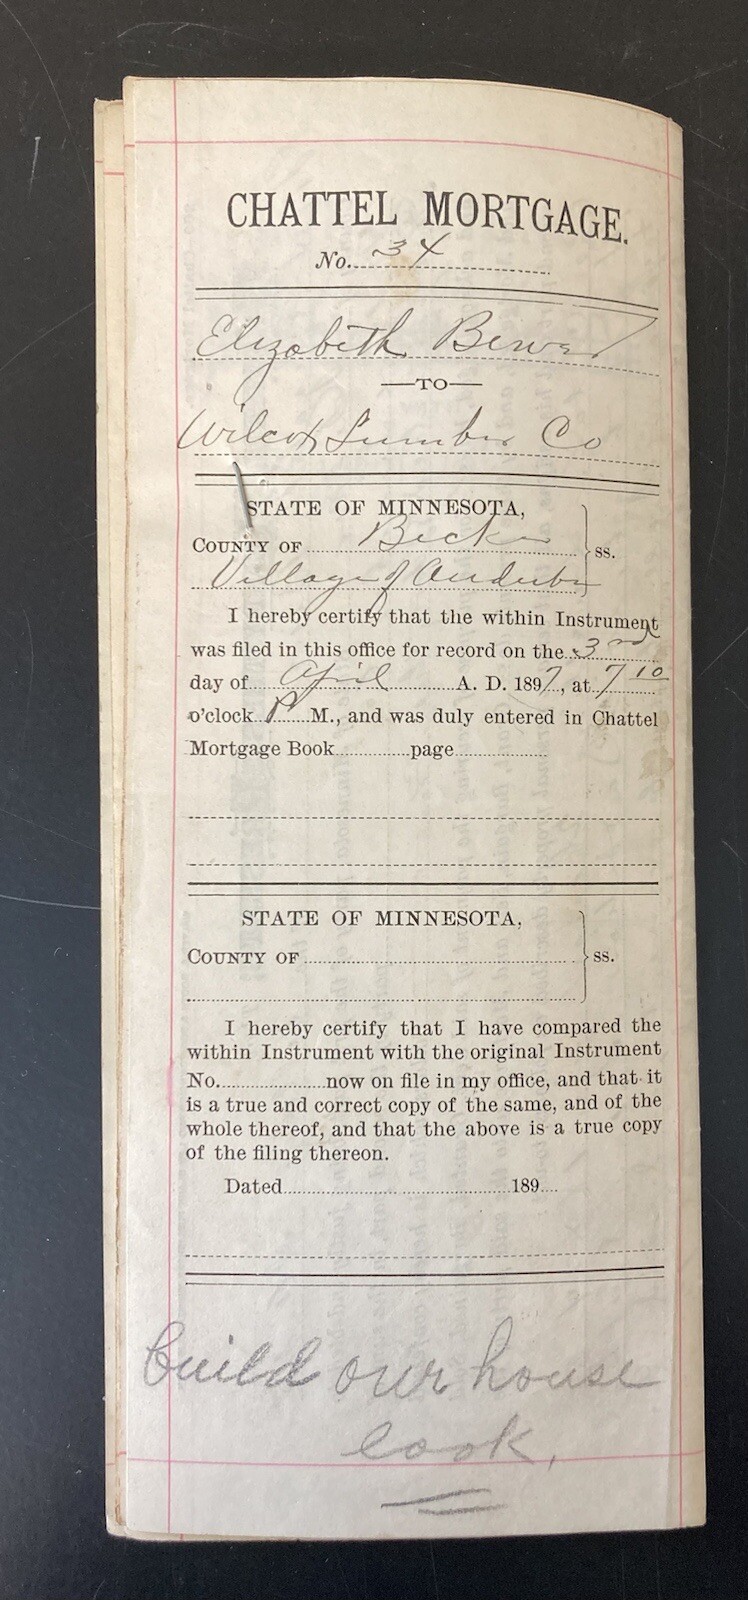 CHATTEL MORTGAGE.
No. 34
Elizabeth
—TO—
Wilcox Lumber Co
STATE OF MINNESOTA,
COUNTY OF Becker ss.
Village of Audubon
I hereby certify that the within Instrument
was filed in this office for record on the 3rd
day of April A. D. 1897, at 7 10
o'clock P M., and was duly entered in Chattel
Mortgage Book page
STATE OF MINNESOTA,
COUNTY OF ss.
I hereby certify that I have compared the
within Instrument with the original Instrument
No. now on file in my office, and that it
is a true and correct copy of the same, and of the
whole thereof, and that the above is a true copy
of the filing thereon.
Dated 189
build our house
look,